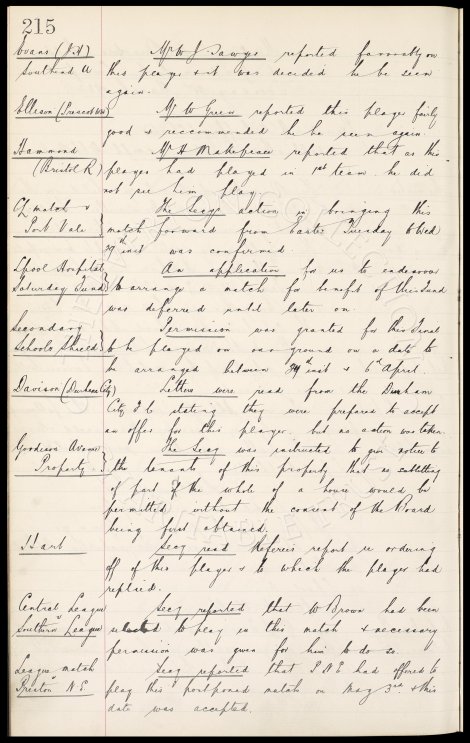 215
Evans (J.A) Mr W J Sawyer reported favorably on
Southend U this player & it was decided he be seen
again.
Ellison (Prescot Mr W Green reported this player fairly
good & reccommended he be seen again.
Hammond Mr H Makepeace reported that as this
(Bristol R) player had played in 1st team he did
not see him play.
CL match v The Secys action in bringing this
Port Vale match forward from Easter Tuesday to Wed
inst was confirmed.
Lpool Hospital An application for us to endeavour
Saturday Fund to arrange a match for benefit of this Fund
was deferred until later on.
Secondary Permission was granted for this Final
Schools Shield to be played on our ground on a date to
be arranged between 29th inst & 6th April.
Davison (Durham City) Letters were read from the Durham
City F.C. stating they were prepared to accept
an offer for this player, but no action was taken.
Goodison Avenue The Secy was instructed to give notice to
Property. the tenants of this property that no subletting
of part of the whole of a house would be
permitted without the consent of the Board
being first obtained.
Hart Secy read Referees report re ordering
off of this player & to which the player had
replied.
Central League Secy reported that W Brown had been
v Southern League selected to play in this match & necessary
permission was given for him to do so.
League match Secy reported that P.N.E had offered to
v Preston N.E. play this postponed match on May 3rd & this
date was accepted.